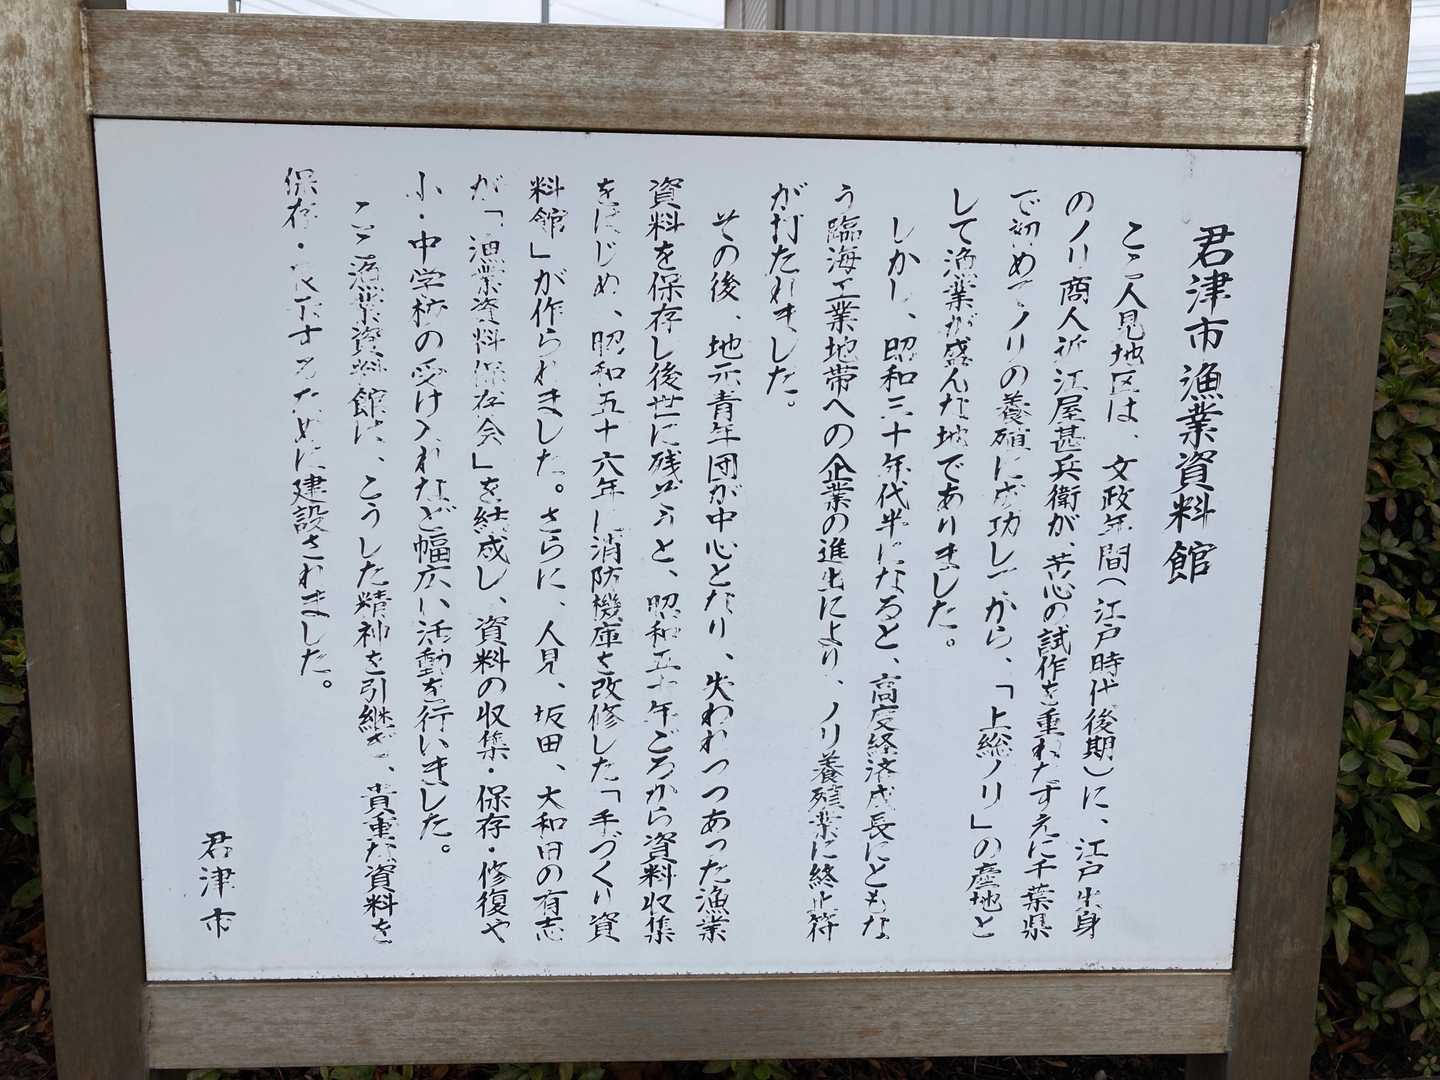 君津市漁業資料館
ここ人見地区は、文政年間（江戸時代後期）に、江戸出身
のノリ商人近江屋甚兵衛が、苦心の試作を重ねたすえに千葉県
で初めてノリの養殖に成功してから、「上総ノリ」の産地と
して漁業が盛んな地でありました。
しかし、昭和三十年代半になると、高度経済成長にともな
う臨海工業地帯への企業の進出により、ノリ養殖業に終止符
が打たれました。
その後、地元青年団が中心となり、失われつつあった漁業
資料を保存し後世に残そうと、昭和五十年ごろから資料収集
をはじめ、昭和五十六年に消防機庫を改修した「手づくり資
料館」が作られました。さらに、人見、坂田、大和田の有志
が「漁業資料保存会」を結成し、資料の収集・保存・修復や
小・中学校の受け入れなど幅広い活動を行いました。
ここ漁業資料館は、こうした精神を引継ぎ、貴重な資料を
保存・するために建設されました。
君津市